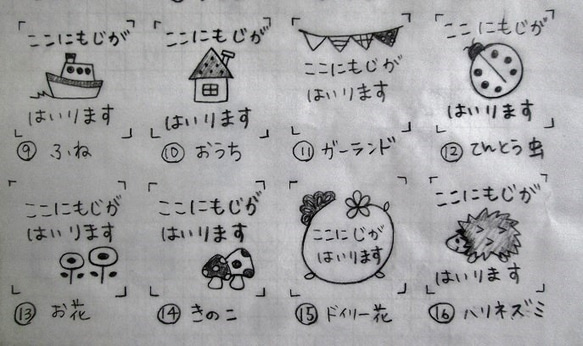 ここにもじが
はいります
⑨ ふね
ここにもじが
はいります
⑩ おうち
ここにもじが
はいります
⑪ ガーランド
ここにもじが
はいります
⑫ てんとう虫
ここにもじが
はいります
⑬ お花
ここにもじが
はいります
⑭ きのこ
ここにじが
はいります
⑮ ドイリー花
ここにもじが
はいります
⑯ ハリネズミ